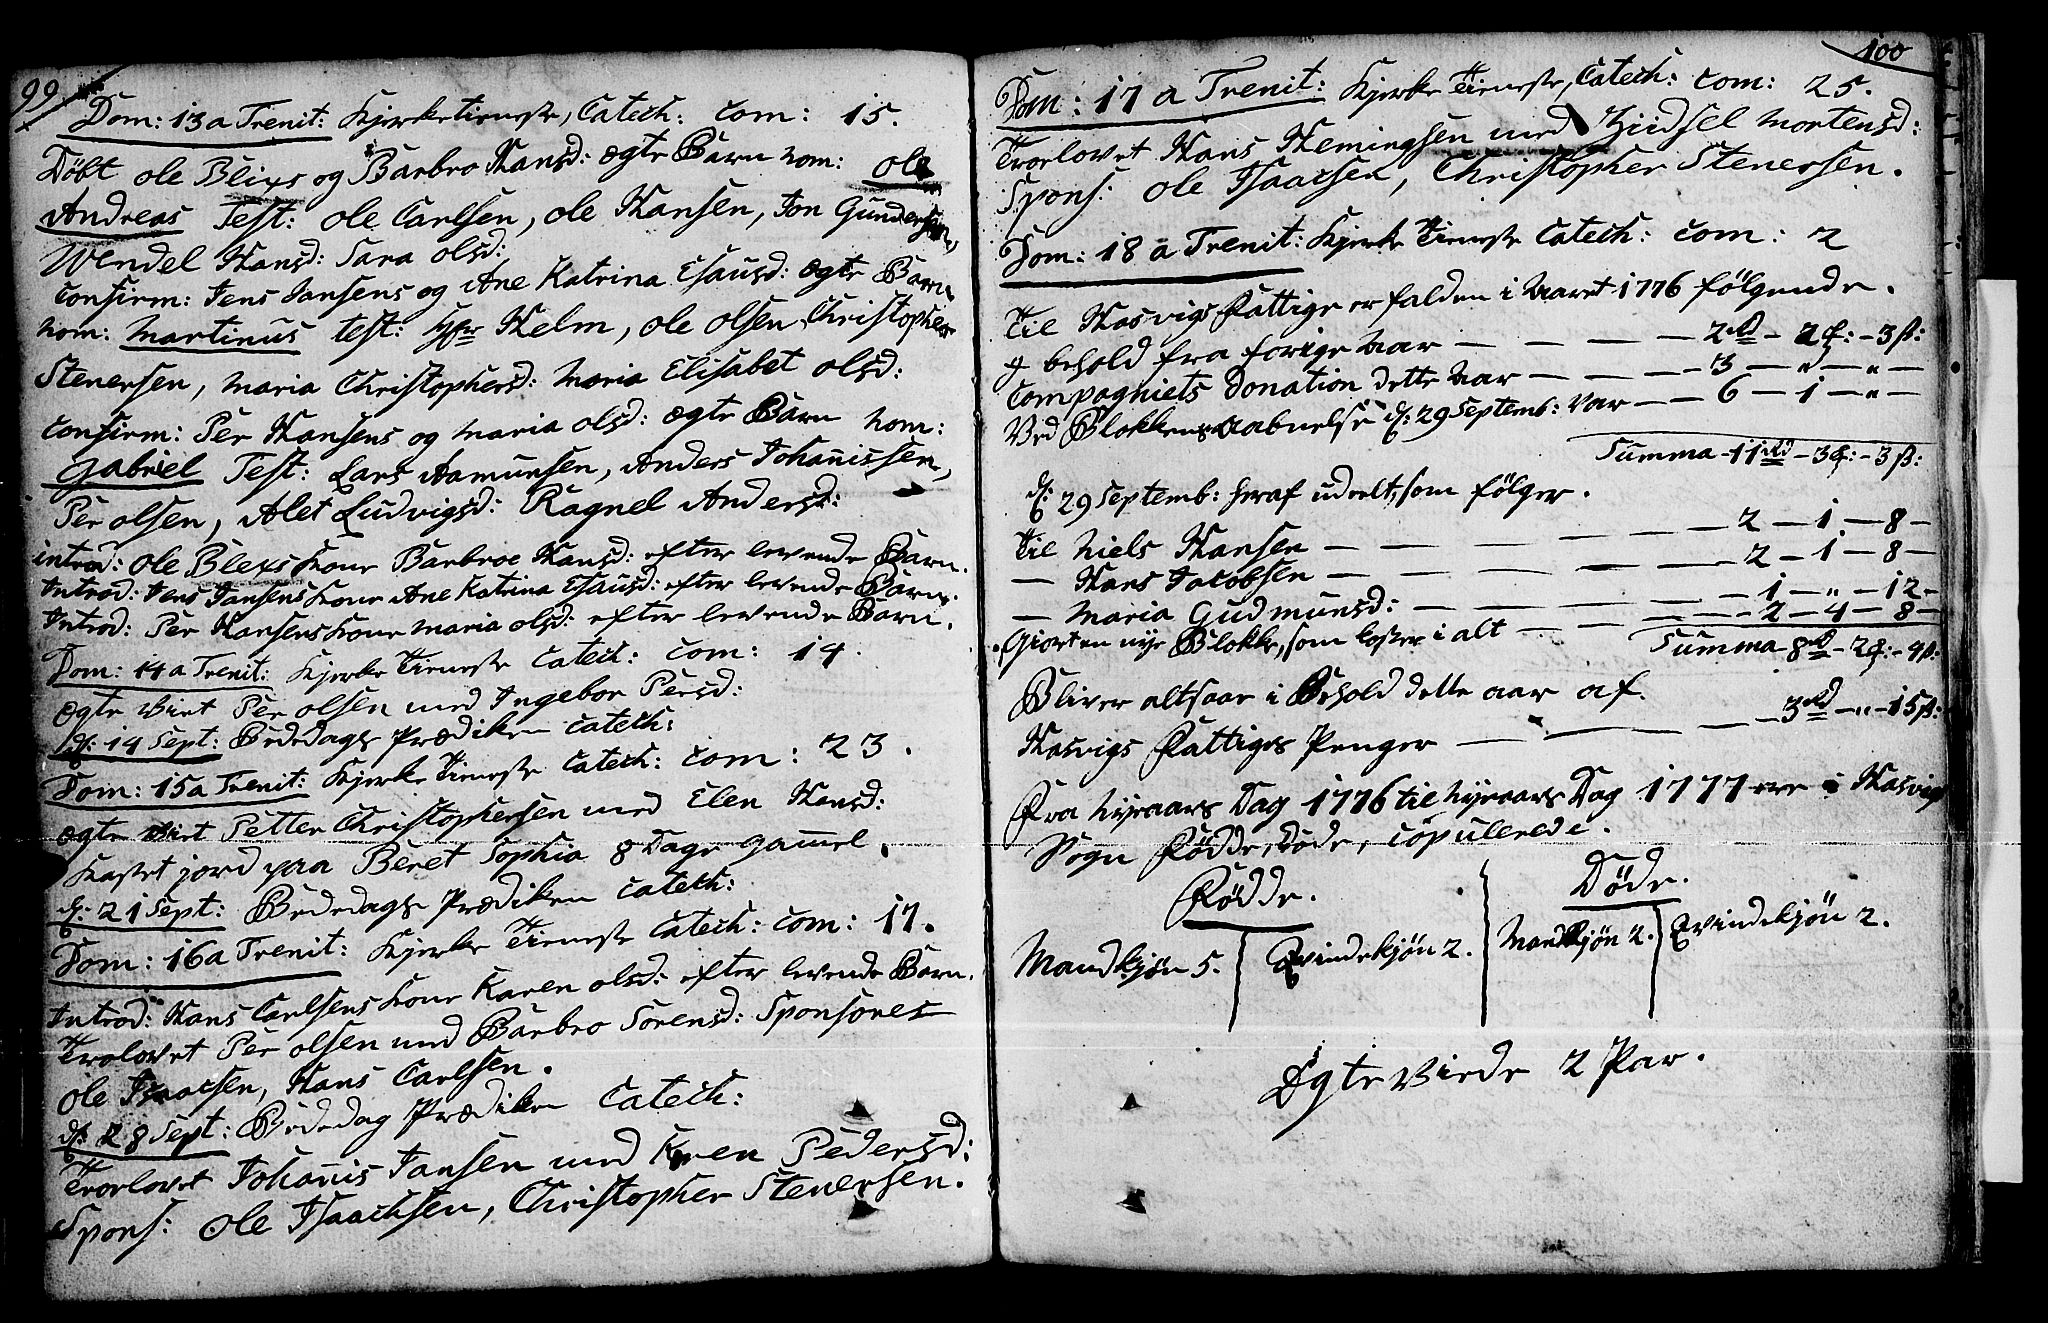 99
Dom: 13 a Trenit: Kjerke tieneste, Catech: Com: 15.
Døbt Ole Blixs og Barbro Hansd: ægte Barn nom: Ole
Andreas Test: Ole Carlsen, Ole Hansen, Jon Gundersen,
Wendel Hansd: Sara Olsd:
Confirm: Jens Jansens og Ane Katrina Esausd: ægte Barn
nom: Martinus test: Helm, Ole Olsen, Christopher
Stenersen, Maria Christophersd: Maria Elisabet Olsd:
Confirm: Per Hansens og Maria Olsd: ægte Barn nom:
Gabriel Test: Lars Aamunsen, Anders Johanissen,
Per Olsen, Alet Ludvigsd: Ragnel Andersd:
introd: Ole Blexs Kone Barbroe Hansd: efter levende Barn.
Introd: Jens Jansens Kone Ane Katrina Esausd: efter levende Barn.
Introd: Per Hansens Kone Maria Olsd: efter levende Barn.
Dom: 14 a Trenit: Kjerke Tieneste Catech: Com: 14.
ægte viet Per Olsen med Ingebor Persd:
d: 14 Sept: Bededags Prædiken Catech:
Dom: 15 a Trenit: Kjerke Tieneste Catech: Com: 23.
ægte viet Petter Christophersen med Elen Hansd:
Kastet jord paa Beret Sophia 8 Dage gammel.
d: 21 Sept: Bededags Prædiken Catech:
Dom: 16 a Trenit: Kjerke Tieneste Catech: Com: 17.
Introd: Hans Carlsens Kone Karen Olsd: efter levende Barn.
Trolovet Per Olsen med Barbro Sorensd: Sponsores
Ole Isaacsen, Hans Carlsen.
d: 28 Sept: Bededag Prædiken Catech:
Trorlovet Johanis Jansen med Karen Pedersd:
Spons: Ole Isaachsen, Christopher Stenersen.
100
Dom: 17 a Trenit: Kjerke Tieneste, Catech: Com: 25.
Trorlovet Hans Hemingsen med Zidsel Mortensd:
Spons: Ole Isaacsen, Christopher Stenersen.
Dom: 18 a Trenit: Kjerke Tieneste Catech: Com: 2
Til Hasvigs Fattige er falden i Aaret 1776 følgende.
J behold fra forige Aar — — — — — 2 rd - 2 : - 3 ß:
Compagniets Donation dette Aar — — — — 3 — " — " —
Ved Blokkens aabnelse d: 29 Septemb: var — — 6 — 1 — " —
Summa - 11 rd - 3 : - 3 ß:
d: 29 Septemb: heraf udeelt, som følger.
Til Niels Hansen — — — — — — 2 — 1 — 8 —
— Hans Jacobsen — — — — — — 2 — 1 — 8 —
— Maria Gudmunsd: — — — — — 1 — " — 12 —
Giort en nye Blokke, som koster i alt — — — 2 — 4 — 8 —
Summa 8 rd - 2 : - 4 ß:
Bliver altsaa i Behold dette aar af
Hasvigs Fattiges Penger — — — — — 3 rd — " — 15 ß:
Fra Nyeaars Dag 1776 til Nyeaars Dag 1777 ere i Hasvig
Sogn Fødde, Døde, Copulerede.
Fødde. Døde.
Mandkjøn 5. Qvindekjøn 2. Mandkjøn 2. Qvindekjøn 2.
Ægte Viede 2 Par.